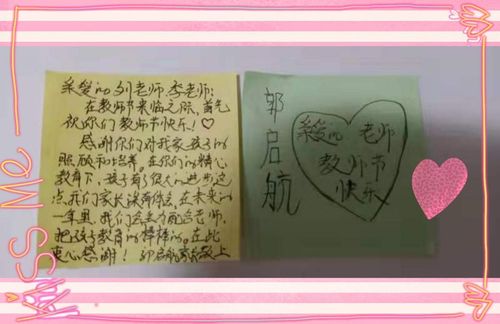 亲爱的刘老师 李老师:
在教师节来临之际,首先
祝你们教师节快乐!♡
感谢你们对我家孩子的
照顾和培养。在你们的精心
教育下,孩子有了很大的进步这
点我们家长深有体会,在未来的
一年里,我们会全力配合老师,
把孩子教育的棒棒的。在此
衷心感谢! 郭启航家长敬上
郭启航
亲爱的 老师
教师节
快乐
MISS Me